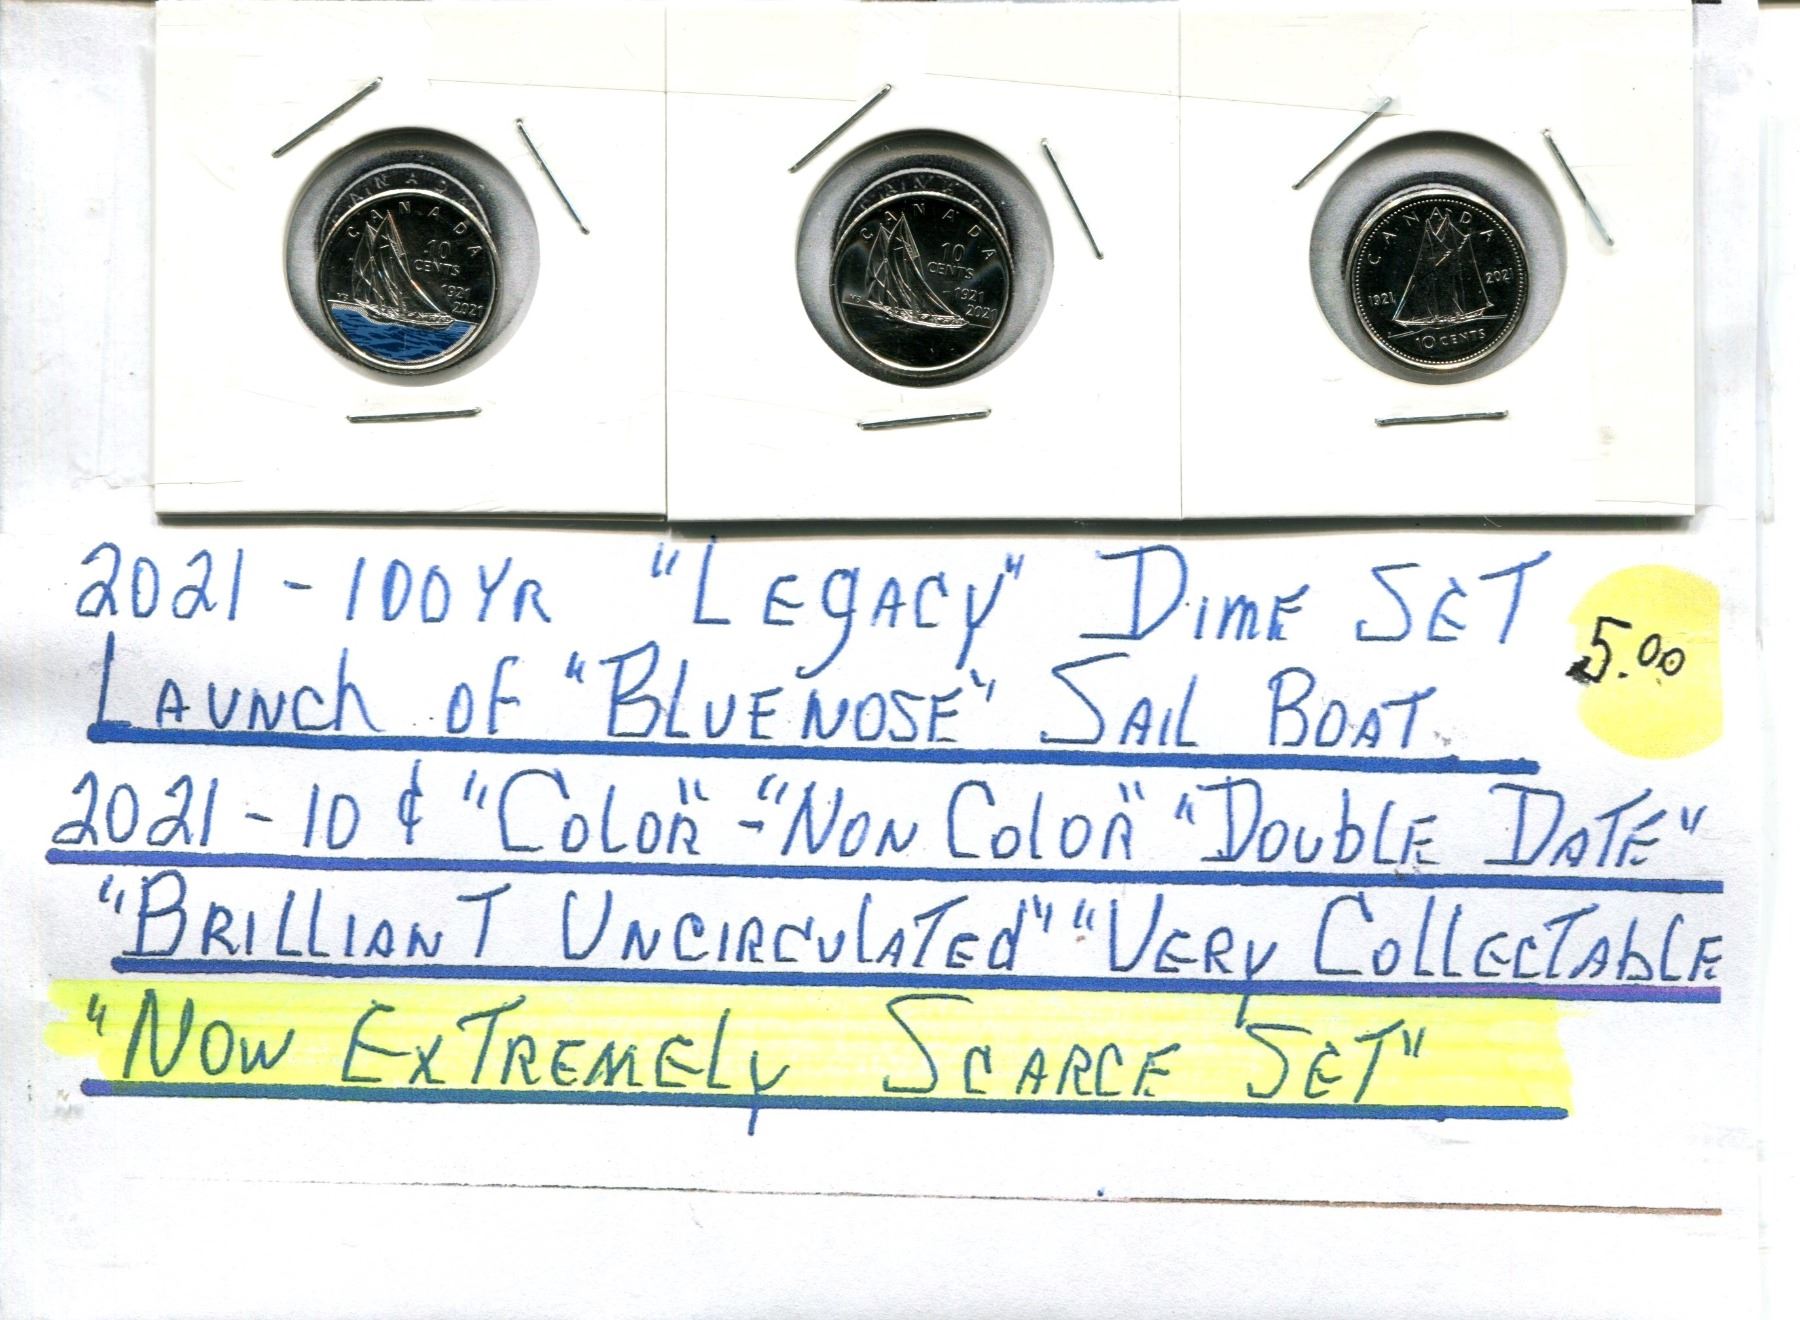 CANADA
10
CENTS
1921
2021
CANADA
10
CENTS
1921
2021
CANADA
1921
2021
10 CENTS
2021 - 100 YR "LEgACY" DIME SET
LAUNCh OF "BLUENOSE" SAIL BOAT
5.00
2021 - 10 ¢ "COlOR" - "NON COlOR" "DOUblE DATE"
"BRILLIANT UNCIRCULATEd" "VERY COllECTAblE
"NOW EXTREMELY SCARCE SET"